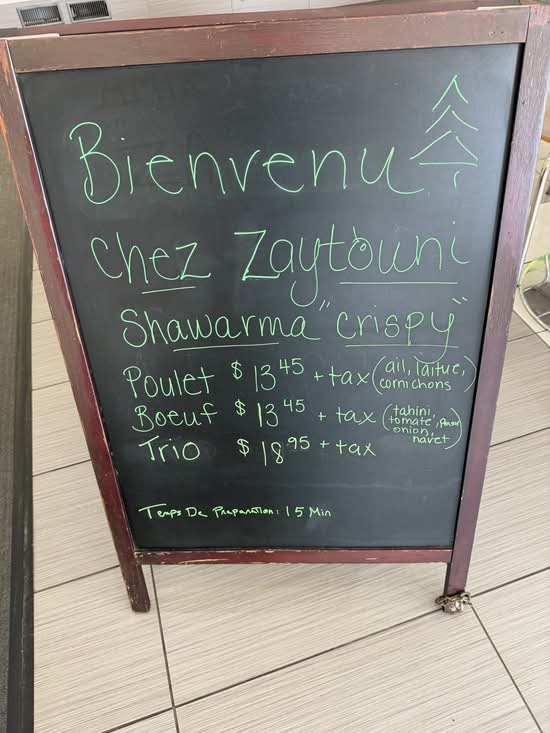 Bienvenu
chez Zaytouni
Shawarma "crispy"
Poulet $13.45 + tax (ail, laitue,
cornichons
Boeuf $13.45 + tax (tahini,
tomate,
onion,
navet)
Trio $18.95 + tax
Temps De Preparation: 15 Min